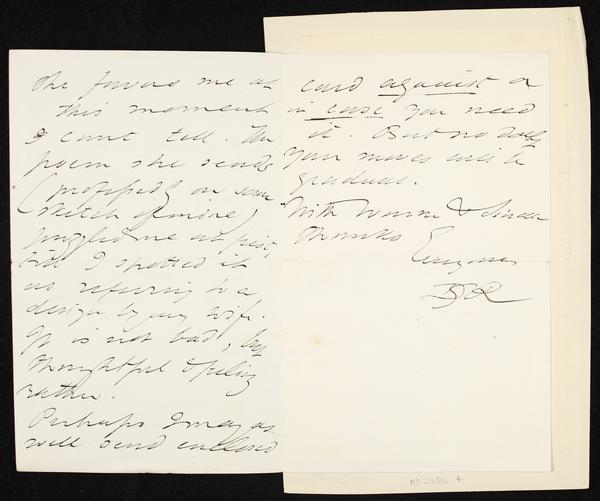 she favours me at
this moment
I cant tell. The
poem she sends
(professedly on some
sketch of mine)
puzzled me at first,
till I spotted it
as referring to a
design by my wife.
It is not bad, but
thoughtful & feeling
rather.
Perhaps I may as
well send enclosed
card against or
in case you need
it. But no doubt
your moves will be
gradual.
With warm & sincere
thanks
Ever yours
DGR
MS23D6:4